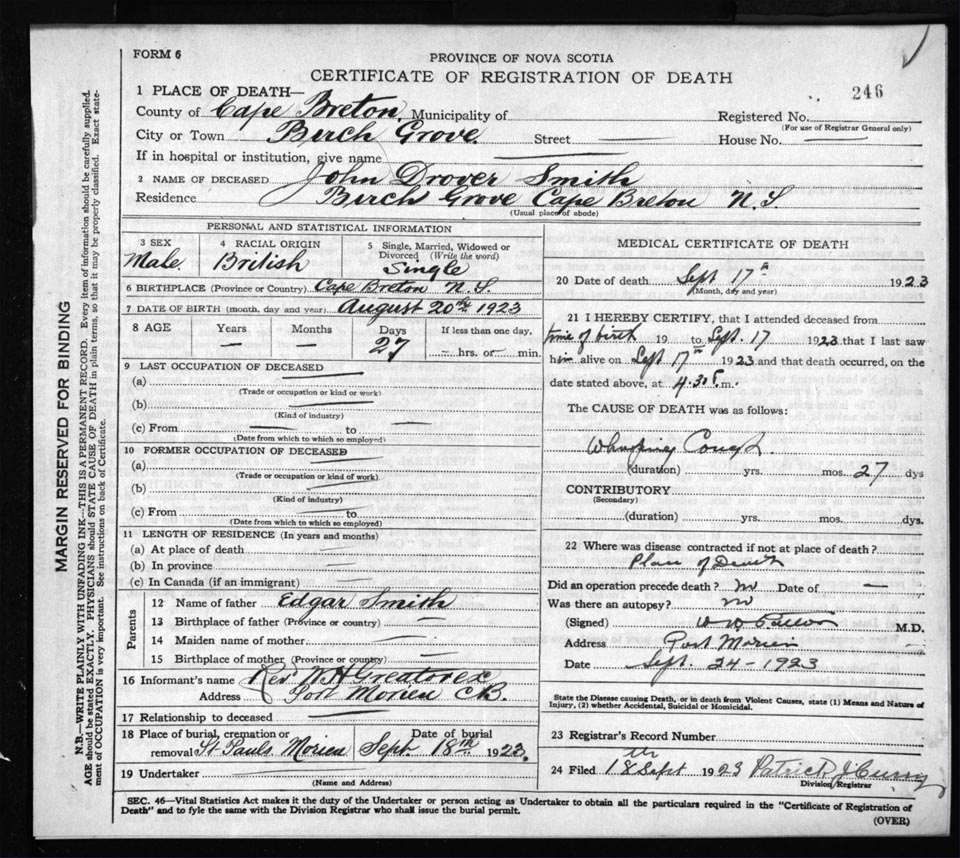 FORM 6
PROVINCE OF NOVA SCOTIA
CERTIFICATE OF REGISTRATION OF DEATH
246
1 PLACE OF DEATH—
County of Cape Breton, Municipality of Registered No.
(For use of Registrar General only)
City or Town Birch Grove. Street House No.
If in hospital or institution, give name
2 NAME OF DECEASED John Drover Smith
Residence Birch Grove Cape Breton N.S.
(Usual place of abode)
PERSONAL AND STATISTICAL INFORMATION
3 SEX Male.
4 RACIAL ORIGIN British
5 Single, Married, Widowed or Divorced (Write the word) Single
6 BIRTHPLACE (Province or Country) Cape Breton N.S.
7 DATE OF BIRTH (month, day and year) August 20th 1923
8 AGE Years — Months — Days 27 If less than one day, — hrs. or — min.
9 LAST OCCUPATION OF DECEASED
(a)
(Trade or occupation or kind or work)
(b)
(Kind of industry)
(c) From to
(Date from which to which so employed)
10 FORMER OCCUPATION OF DECEASED
(a)
(Trade or occupation or kind of work)
(b)
(Kind of industry)
(c) From to
(Date from which to which so employed)
11 LENGTH OF RESIDENCE (In years and months)
(a) At place of death
(b) In province
(c) In Canada (if an immigrant)
Parents
12 Name of father Edgar Smith
13 Birthplace of father (Province or country)
14 Maiden name of mother
15 Birthplace of mother (Province or country)
16 Informant's name Rev. W H Greatorex
Address Port Morien C.B.
17 Relationship to deceased
18 Place of burial, cremation or removal St Pauls Morien Date of burial Sept 18th 1923.
19 Undertaker
(Name and Address)
MEDICAL CERTIFICATE OF DEATH
20 Date of death Sept 17th 1923
(Month, day and year)
21 I HEREBY CERTIFY, that I attended deceased from
time of birth 19 to Sept. 17 1923 that I last saw
him alive on Sept 17th 1923 and that death occurred, on the
date stated above, at 4.30 P.m.
The CAUSE OF DEATH was as follows:
Whooping Cough.
(duration) yrs. mos. 27 dys
CONTRIBUTORY
(Secondary)
(duration) yrs. mos. dys.
22 Where was disease contracted if not at place of death?
Place of Death
Did an operation precede death? no Date of —
Was there an autopsy? no
(Signed) M.D.
Address Port Morien
Date Sept. 24-1923
State the Disease causing Death, or in death from Violent Causes, state (1) Means and Nature of
Injury, (2) whether Accidental, Suicidal or Homicidal.
23 Registrar's Record Number
24 Filed 18th Sept 1923 Patrick J Curry
Division Registrar
SEC. 46—Vital Statistics Act makes it the duty of the Undertaker or person acting as Undertaker to obtain all the particulars required in the "Certificate of Registration of
Death" and to fyle the same with the Division Registrar who shall issue the burial permit.
(OVER)
MARGIN RESERVED FOR BINDING
N.B.—WRITE PLAINLY WITH UNFADING INK—THIS IS A PERMANENT RECORD. Every item of information should be carefully supplied.
AGE should be stated EXACTLY. PHYSICIANS should STATE CAUSE OF DEATH in plain terms, so that it may be properly classified. Exact state-
ment of OCCUPATION is very important. See instructions on back of Certificate.